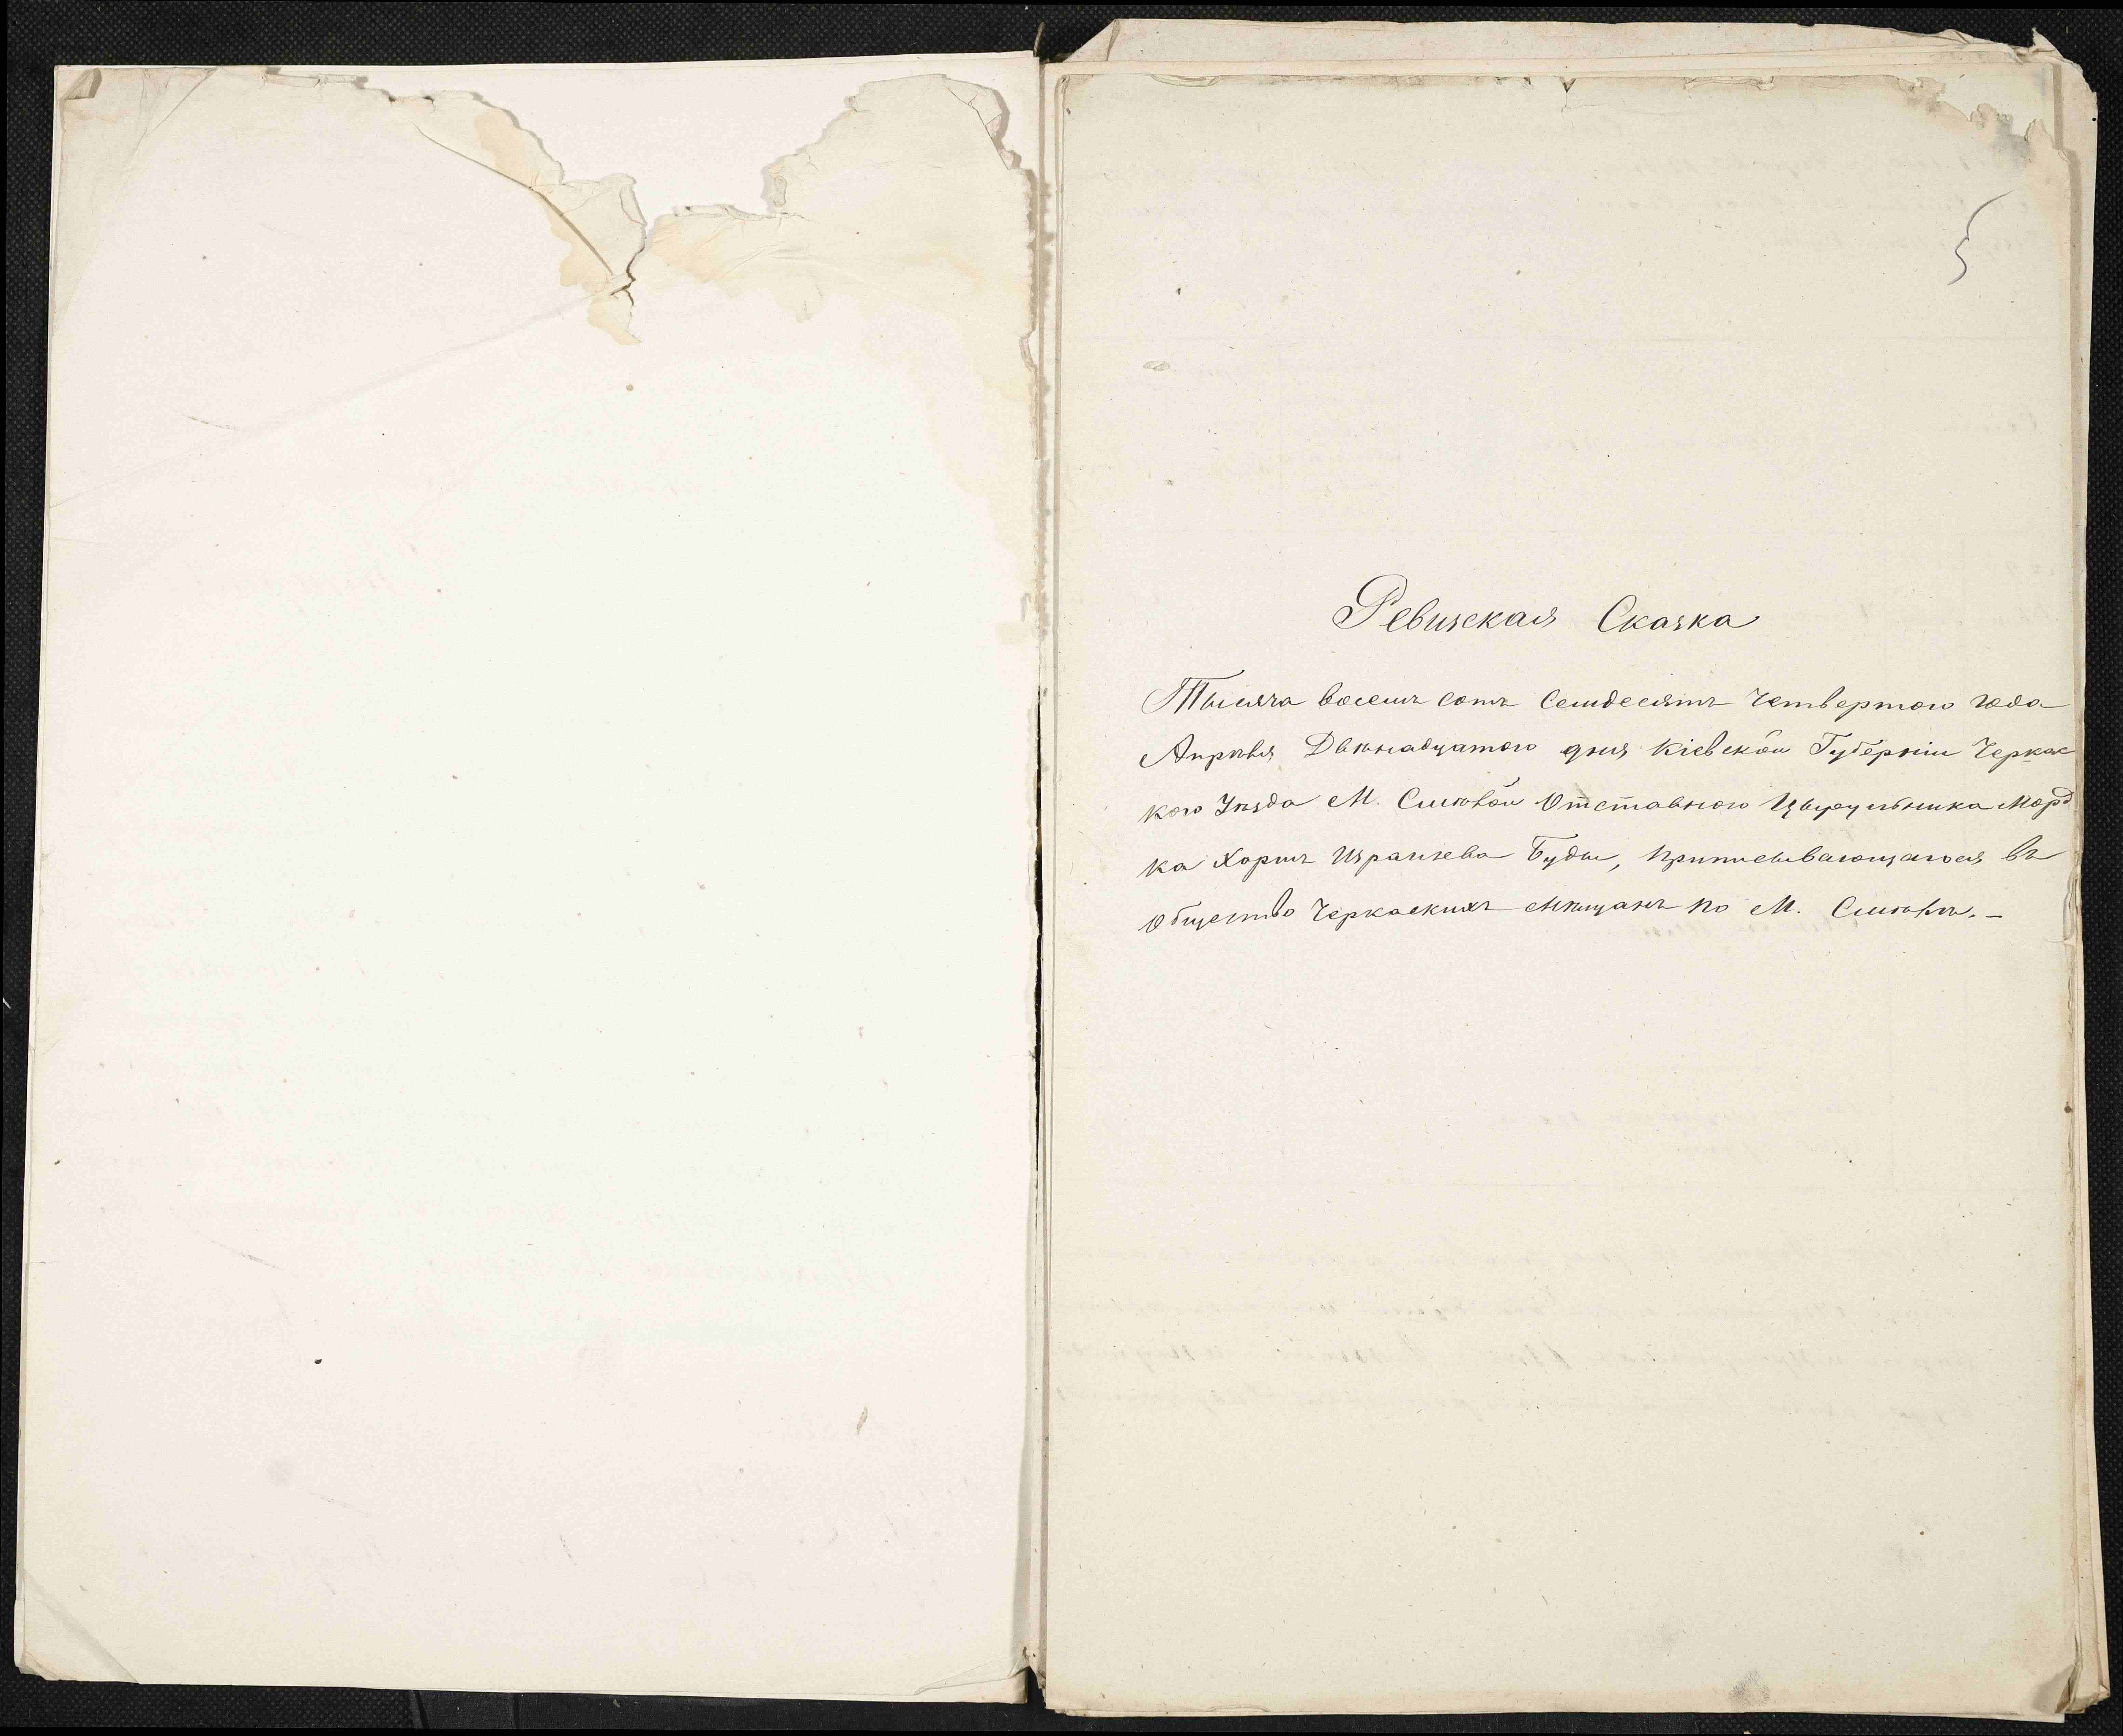 Ревизская Сказка
Тысяча восемъ сотъ Семдесятъ Четвертого года
Апрѣля Двѣнадцатого дня Кіевской Губерніи Черкас
кого Уѣзда М. Смѣлой Отставного Цырульника Морд
ка Харимъ Израилева Буды, приписывающагося въ
Общество Черкаскихъ Мѣщанъ по М. Смѣлѣ. –